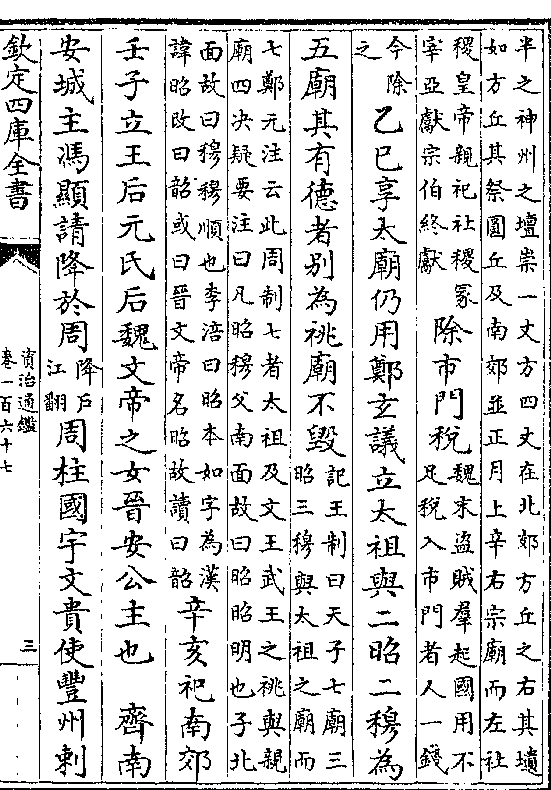 半之神州之壇崇一丈方四丈在北郊方丘之右其壝
如方丘其祭圜丘及南郊並正月上辛右宗廟而左社
稷皇帝親祀社稷冢
宰亞獻宗伯終獻
除市門稅
魏末盜賊羣起國用不
足稅入市門者人一錢
今除
之
乙巳享太廟仍用鄭玄議立太祖與二昭二穆為
五廟其有德者别為祧廟不毀
記王制曰天子七廟三
昭三穆與太祖之廟而
七鄭元注云此周制七者太祖及文王武王之祧與親
廟四决疑要注曰凡昭穆父南面故曰昭昭明也子北
面故曰穆穆順也李涪曰昭本如字為漢
諱昭改曰韶或曰晉文帝名昭故讀曰韶
辛亥祀南郊
壬子立王后元氏后魏文帝之女晉安公主也 齊南
安城主馮顯請降於周
降户
江翻
周柱國宇文貴使豐州刺
欽定四庫全書
資治通鑑
卷一百六十七
三